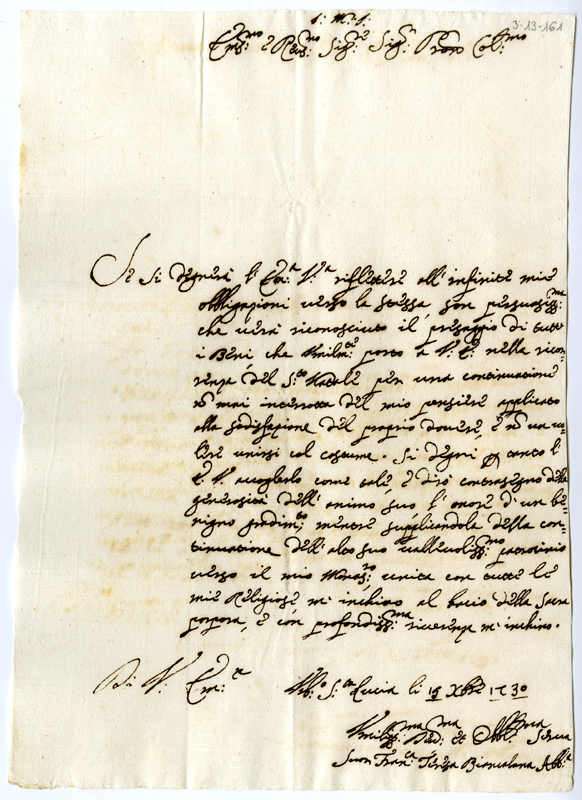 3-13-161
J. M. J.
Em:mo e Reu:mo Sig:re Sig:r Pron Col:mo
Se si degnerà l' Em:a V:a riflettere all' infinite mie
obbligazioni verso la stessa, son persuasiss:ma
che verrà riconosciuto il presaggio di tutti
i Beni che Umilm:te porto a V. E. nella ricor=
renza del S:to Natale per una continuazione
mai interrotta del mio pensiere applicato
alla sodisfazione del proprio dovere, e un vo=
lere unirsi col costume. Si degni tanto l'
E. V. accoglierlo come tale, e dirò contrasegno della
generosità dell' animo suo l' onore d' un be=
nigno gradim:to mentre supplicandola della con=
tinuazione dell' alto suo patrocinio
verso il mio Monas:ro unita con tutte le
mie Religiose m' inchino al bacio della Sacra
porpora, e con profondiss:ma riverenza m' inchino.
Di V. Em:a S:ta Lucia li 19 Xbre 1730
Umiliss:ma Deu:ma et Obbl:ma Serua
Suor Fran:ca Teresa Biancalana Abb:a